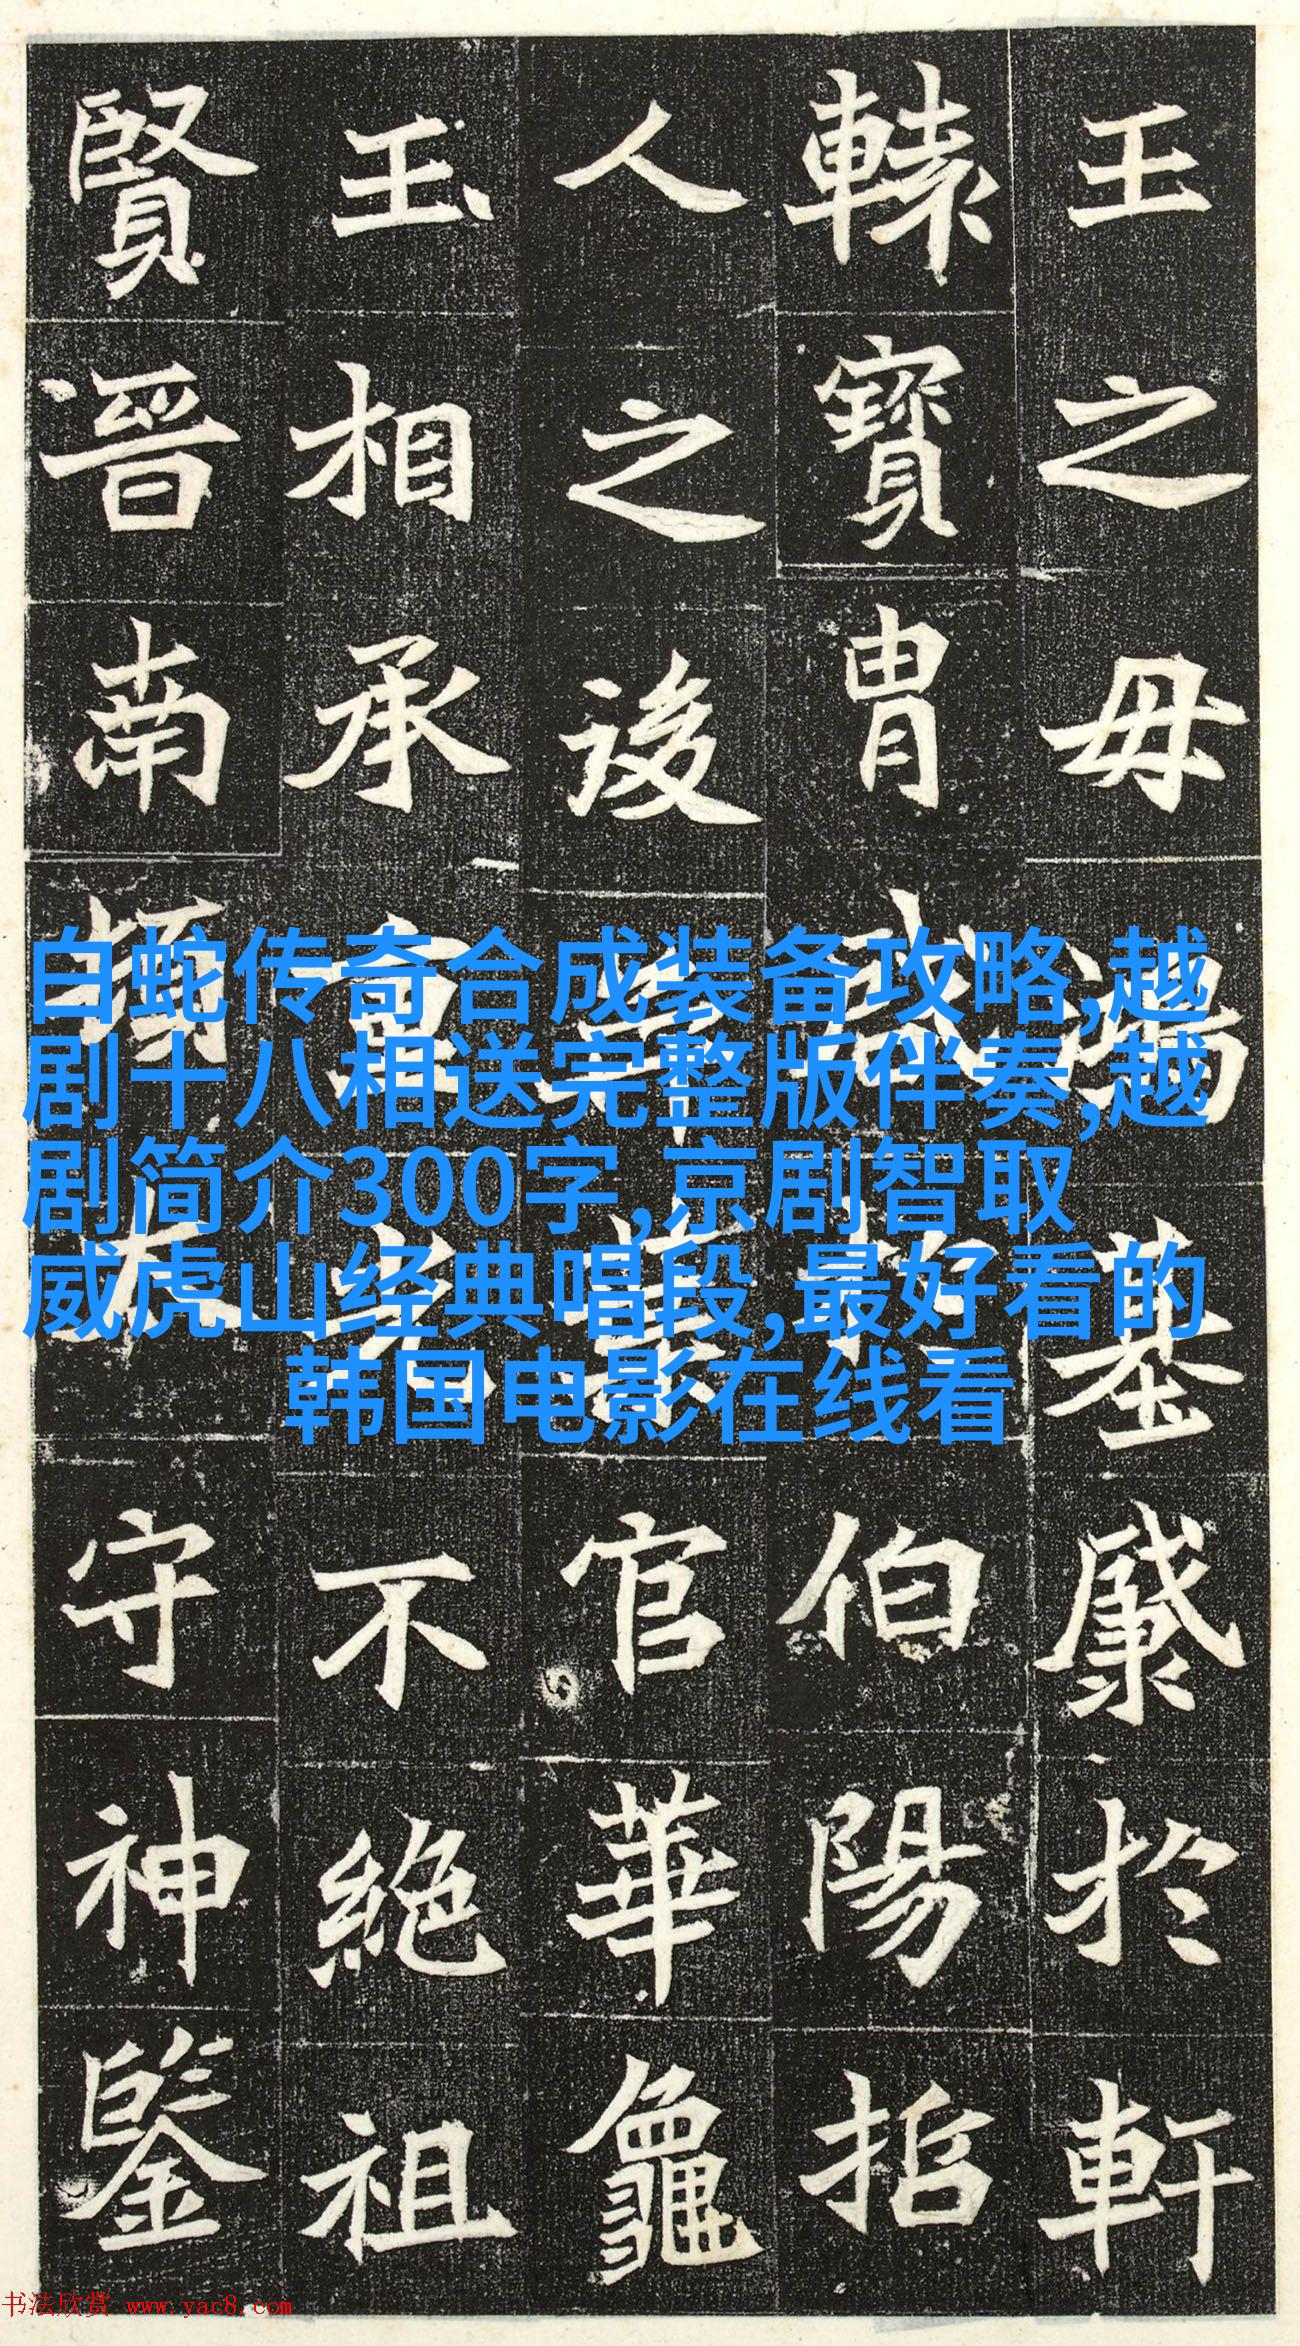 王之毋基於軒
轅寶胄伯陽
人之後官華龕
玉相承不絶祖
賢晉南頓太守神鑒
白蛇传奇合成装备攻略,越
剧十八相送完整版伴奏,越
剧简介300字,京剧智取
威虎山经典唱段,最好看的
韩国电影在线看
书法欣赏 www.yac8.com